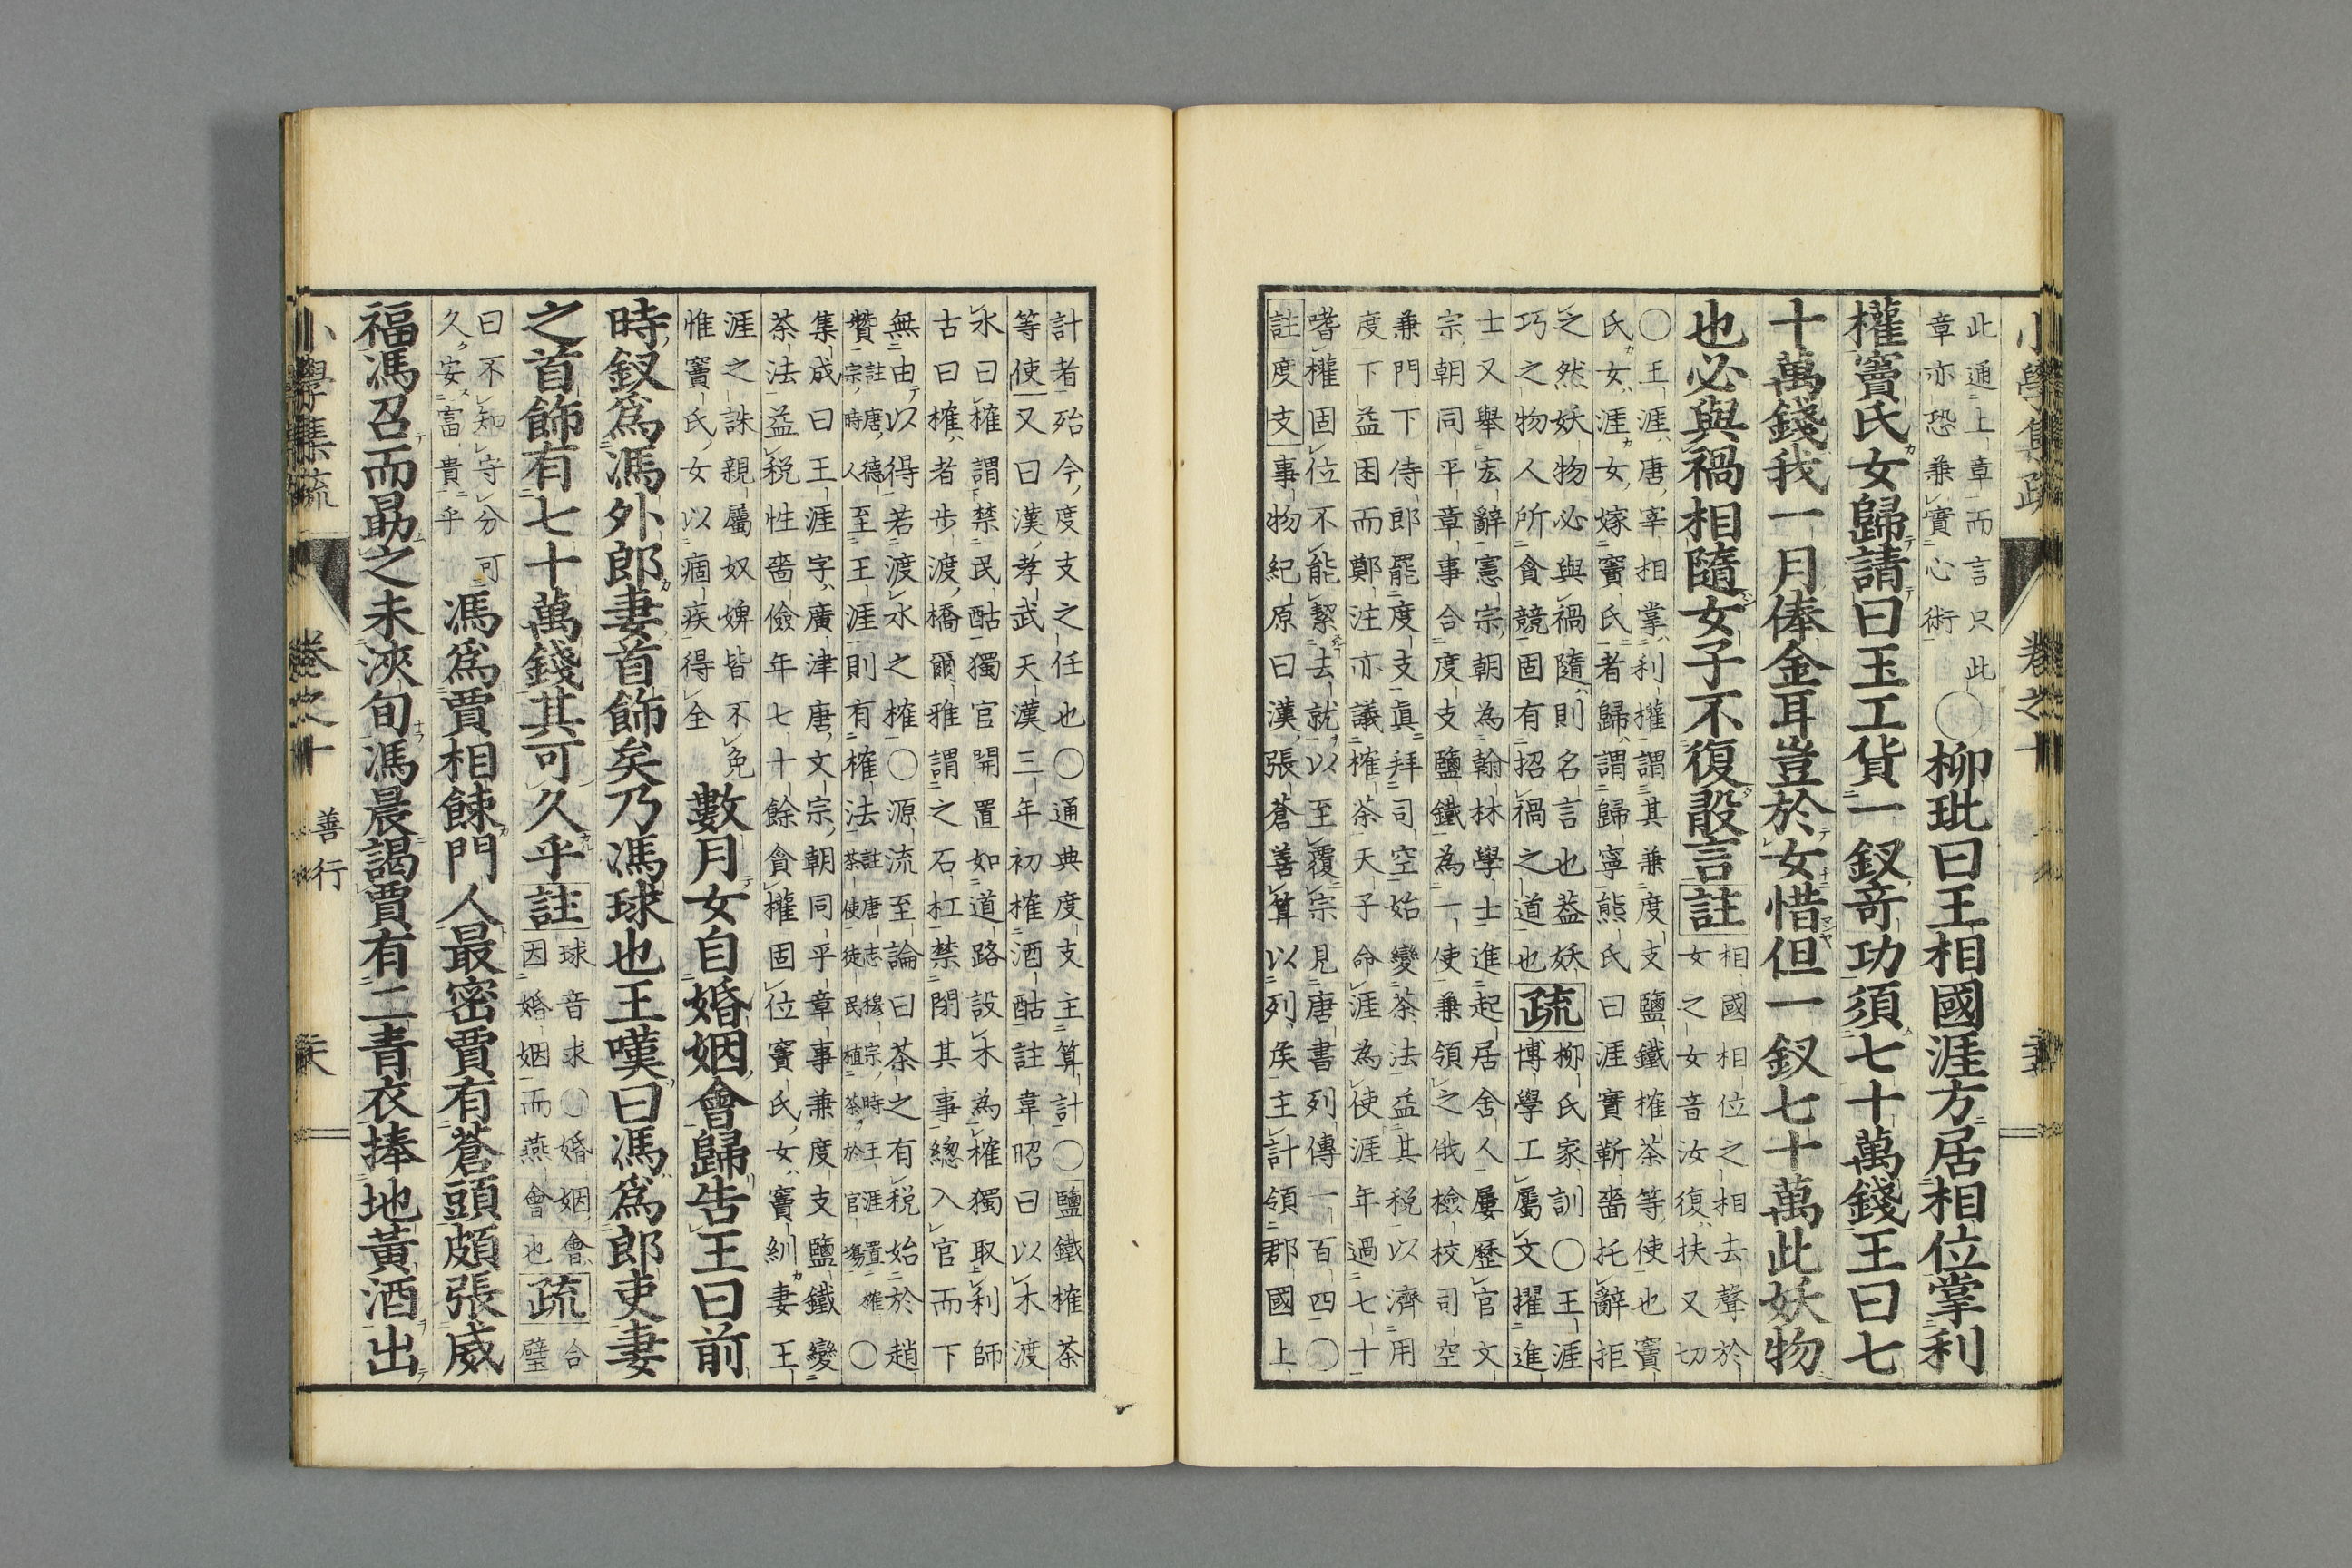 小學集疏
卷之十
此通上章而言只此
章亦恐兼實心術
○柳玭曰王相國涯方居相位掌利
權竇氏女歸請曰玉工貨一釵奇功須七十萬錢王曰七
十萬錢我一月俸金耳豈於女惜但一釵七十萬此妖物
也必與禍相隨女子不復敢言註
相國相位之相去聲於
女之女音汝復扶又切
○王涯唐宰相掌利權謂其兼度支鹽鐵榷茶等使也竇
氏女涯女嫁竇氏者歸謂歸寧熊氏曰涯實靳嗇托辭拒
之然妖物必與禍隨則名言也蓋妖
巧之物人所貪競固有招禍之道也疏
柳氏家訓○王涯
博學工屬文擢進
士又舉宏辭憲宗朝為翰林學士進起居舍人屢歷官文
宗朝同平章事合度支鹽鐵為一使兼領之俄檢校司空
兼門下侍郎罷度支眞拜司空始變茶法益其稅以濟用
度下益困而鄭注亦議榷茶天子命涯為使涯年過七十
嗜權固位不能絜去就以至覆宗見唐書列傳一百四○
註度支事物紀原曰漢張蒼善算以列矦主計領郡國上
計者殆今度支之任也○通典度支主算計○鹽鐵榷茶
等使又曰漢孝武天漢三年初榷酒酤註韋昭曰以木渡
水曰榷謂禁民酤獨官開置如道路設木為榷獨取利師
古曰榷者步渡橋爾雅謂之石杠禁閉其事總入官而下
無由以得若渡水之榷○源流至論曰茶之有稅始於趙
贊
註唐德
宗時人
至王涯則有榷法
註唐志穆宗時王涯置榷
茶使徒民植茶於官場
○
集成曰王涯字廣津唐文宗朝同平章事兼度支鹽鐵變
茶法益稅性嗇儉年七十餘貪權固位竇氏女竇紃妻王
涯之誅親屬奴婢皆不免
惟竇氏女以痼疾得全
數月女自婚姻會歸告王曰前
時釵為馮外郎妻首飾矣乃馮球也王嘆曰馮為郎吏妻
之首飾有七十萬錢其可久乎註
球音求○婚姻會
因婚姻而燕會也
疏
合璧
曰不知守分可
久安富貴乎
馮為賈相餗門人最密賈有蒼頭頗張威
福馮召而勗之未浹旬馮晨謁賈有二青衣捧地黃酒出
小學集疏
卷之十
善行